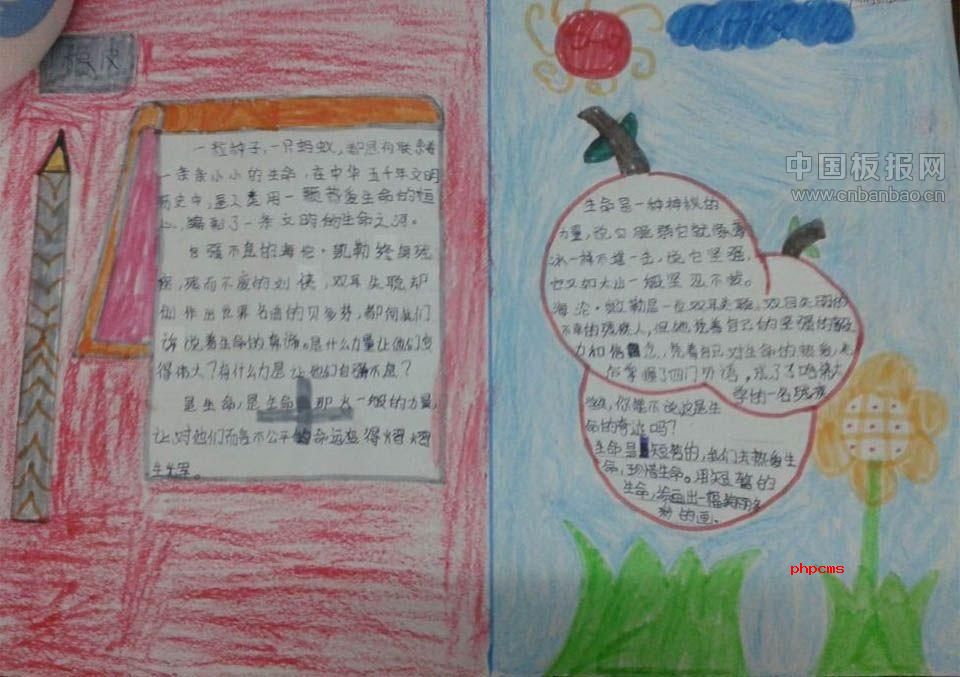 橡皮
一粒种子,一只蚂蚁,都是有联系着
一条条小小的生命,在中华五千年文明
历史中,是人类用一颗热爱生命的恒
心,编制了一条文明的生命之河。
自强不息的海伦·凯勒终身残
疾,残而不废的刘侠,双耳失聪却
创作出世界名曲的贝多芬,都向我们
诉说着生命的真谛。是什么力量让他们变
得伟大?有什么力量让他们自强不息?
是生命,是生命那火一般的力量,
让对他们而言不公平的命运变得熠熠
生辉。
生命是一种神秘的
力量,说它脆弱它就像薄
冰一样不堪一击,说它坚强,
它又如大山一般坚忍不拔。
海沦·凯勒是一位双耳失聪、双目失明的
不幸的残疾人,但她凭着自己的坚强的毅
力和信念,凭着自己对生命的热爱,她
学掌握了四门外语,成了哈佛大
学的一名残疾
学生,你能不说这是生
命的奇迹吗?
生命是短暂的,我们去热爱生
命,珍惜生命。用短暂的
生命,绘画出一幅美丽多
彩的画。
中国板报网
www.cnbanbao.cn
phpcms